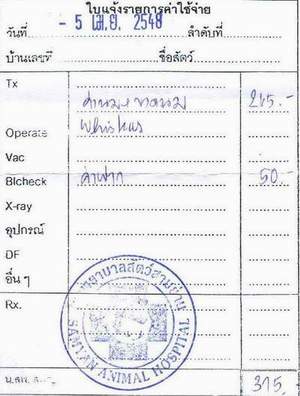 ใบแจ้งรายการค่าใช้จ่าย
วันที่ - 5 เม.ย. 2548 ลำดับที่
บ้านเลขที่ ชื่อสัตว์
Tx
265.-
Operate Whiskas
Vac
Blcheck ค่าฝาก 50.-
X-ray
อุปกรณ์
DF
อื่น ๆ
Rx.
โรงพยาบาลสัตว์สามย่าน
SAMYAN ANIMAL HOSPITAL
น.สพ. 315